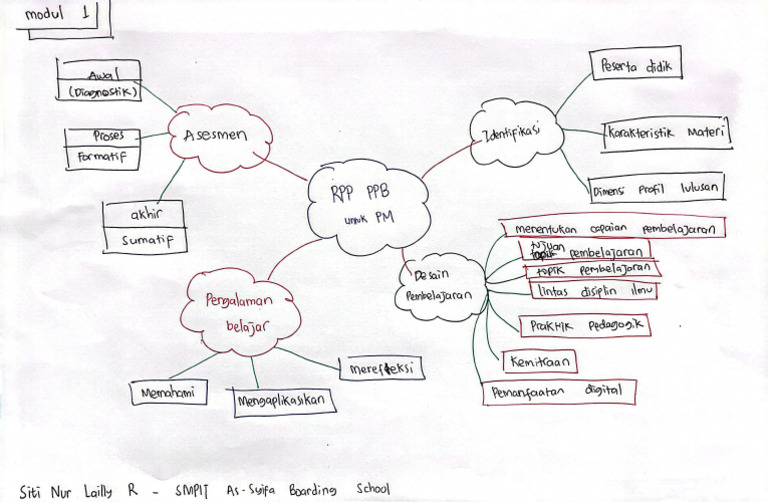 modul 1
Awal
(Diagnostik)
Proses
Formatif
akhir
sumatif
Asesmen
RPP PPB
untuk PM
Identifikasi
Peserta didik
Karakteristik Materi
Dimensi Profil lulusan
Desain
Pembelajaran
menentukan capaian pembelajaran
tujuan
pembelajaran
topik pembelajaran
lintas disiplin ilmu
Praktik Pedagogik
Kemitraan
Pemanfaatan digital
Pengalaman
belajar
Memahami
Mengaplikasikan
merefleksi
Siti Nur Lailly R - SMPIT As-Syifa Boarding School